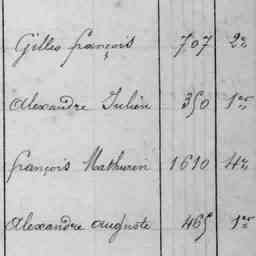 Gilles françois 707 2e
Alexandre Julien 350 1er
françois Mathurin 1610 4e
Alexandre auguste 465 1er